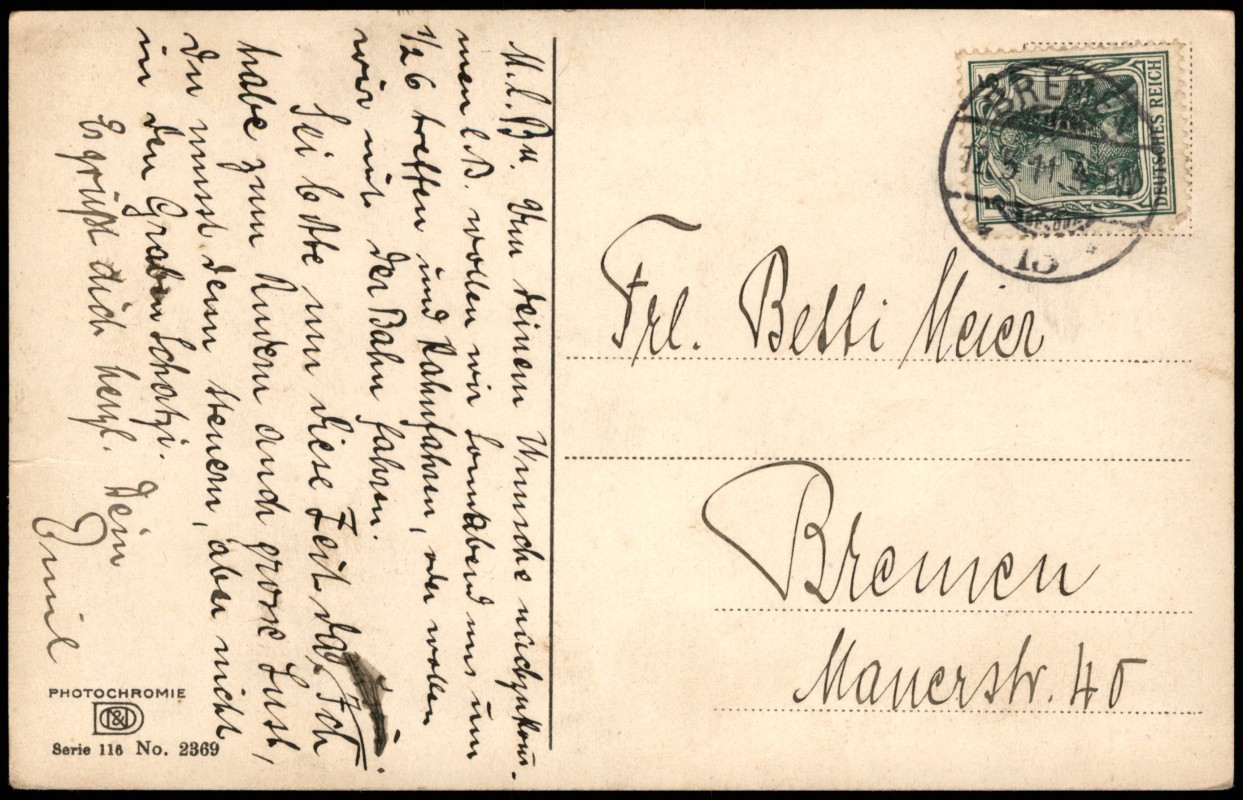 M. l. Be. Um deinen Wunsche nachzukom-
men l. B. wollen wir Sonnabend uns um
1/2 6 treffen und Kahnfahren, oder wollen
wir mit der Bahn fahren.
Sei bitte um diese Zeit da. Ich
habe zum Rudern auch grosse Lust,
du musst denn steuern, aber nicht
in den Graben Schatzi.
Es grüßt dich herzl. Dein
Emil
BREMEN
5. 11.
15
DEUTSCHES REICH
5
5
Frl. Betti Meier
Bremen
Mauerstr. 40
PHOTOCHROMIE
Serie 116 No. 2369